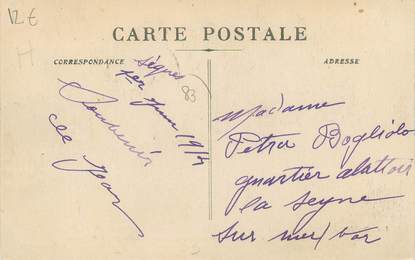 12 €
CARTE POSTALE
CORRESPONDANCE
ADRESSE
1er Juin 1914
Souvenir
de
83
Madame
Petra Dogliolo
quartier alattoir
la Seyne
sur mer/var